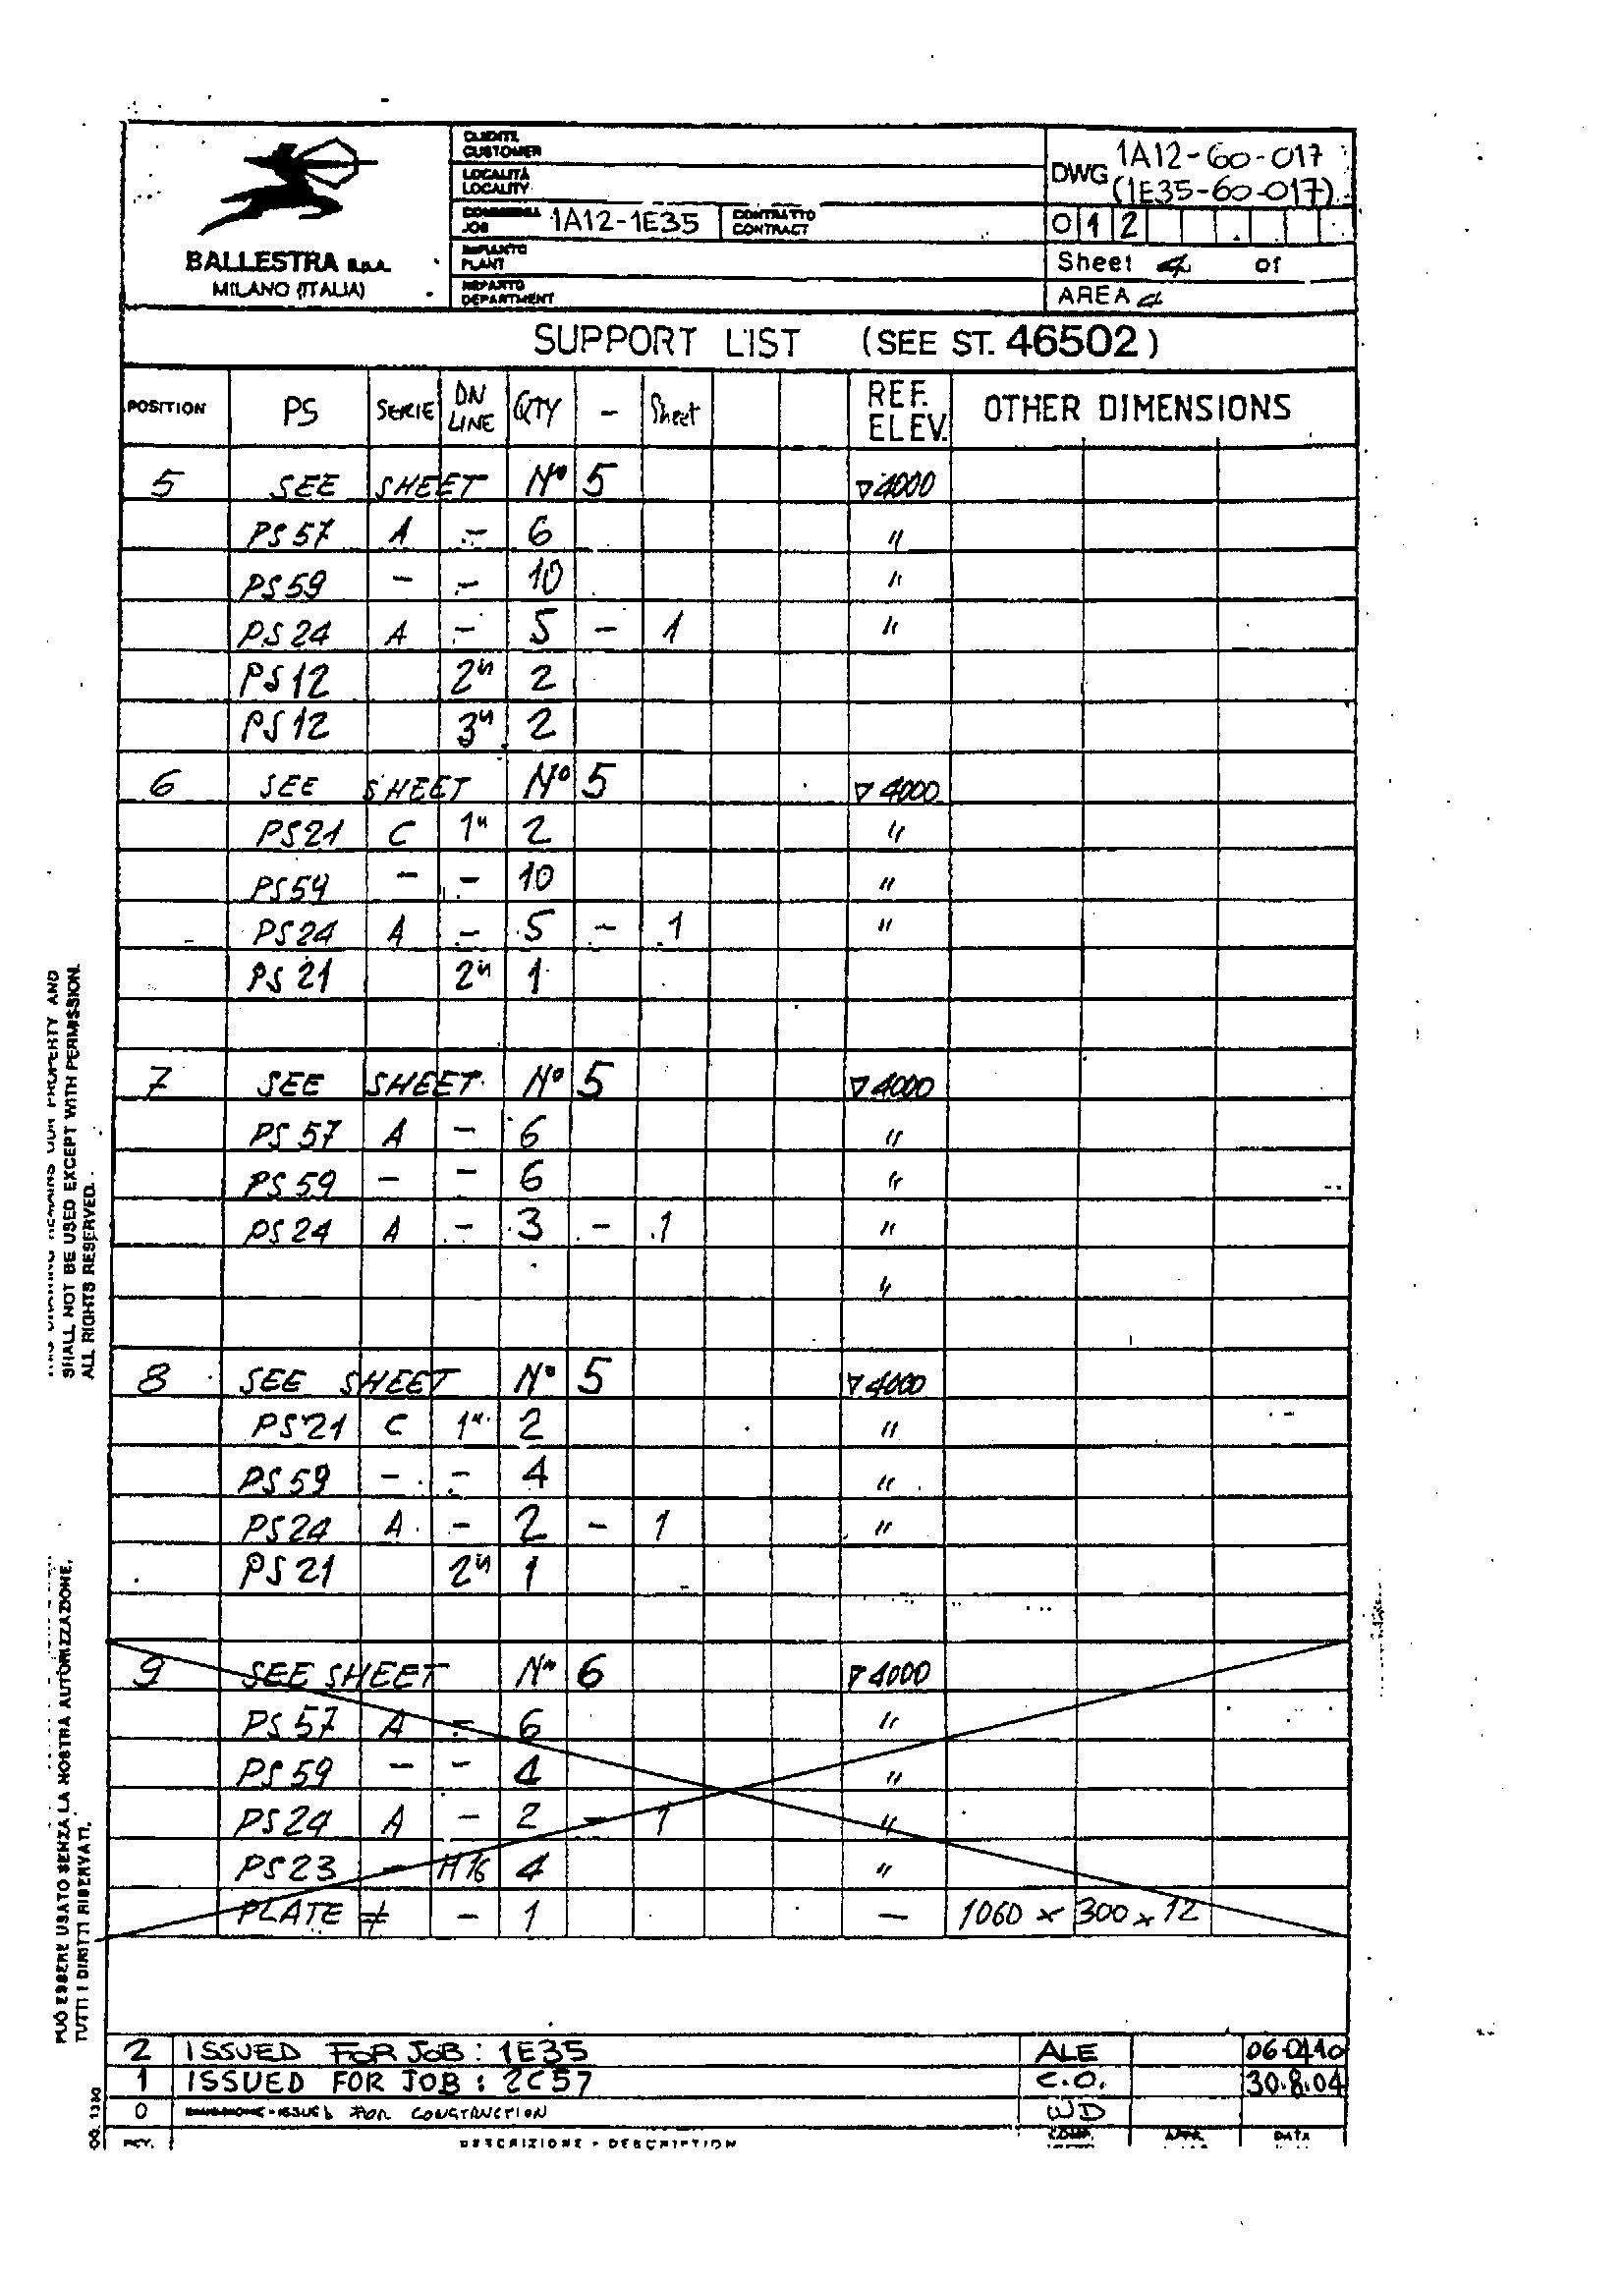 CLIENTE
CUSTOMER
LOCALITÀ
LOCALITY
COMMESSA
JOB 1A12-1E35 CONTRATTO
CONTRACT
IMPIANTO
PLANT
REPARTO
DEPARTMENT
BALLESTRA S.p.A.
MILANO (ITALIA)
DWG 1A12-60-017
(1E35-60-017)
0 1 2
Sheet 4 of
AREA 4
SUPPORT LIST (SEE ST. 46502)
POSITION PS SERIE DN LINE QTY - Sheet REF. ELEV. OTHER DIMENSIONS
5 SEE SHEET N° 5 ▽4000
PS57 A - 6 "
PS59 - - 10 "
PS24 A - 5 - 1 "
PS12 2" 2
PS12 3" 2
6 SEE SHEET N° 5 ▽4000
PS21 C 1" 2 "
PS59 - - 10 "
PS24 A - 5 - 1 "
PS21 2" 1
7 SEE SHEET N° 5 ▽4000
PS57 A - 6 "
PS59 - - 6 "
PS24 A - 3 - 1 "
"
8 SEE SHEET N° 5 ▽4000
PS21 C 1" 2 "
PS59 - - 4 "
PS24 A - 2 - 1 "
PS21 2" 1
9 SEE SHEET N° 6 ▽4000
PS57 A - 6 "
PS59 - - 4 "
PS24 A - 2 - 1 "
PS23 - M16 4 "
PLATE ≠ - 1 - 1060 x 300 x 12
2 ISSUED FOR JOB: 1E35 ALE 06.04.10
1 ISSUED FOR JOB: 2C57 C.O. 30.8.04
0 EMISSIONE - ISSUED FOR CONSTRUCTION WD
REV. DESCRIZIONE - DESCRIPTION COMP. APPR. DATA
PROPERTY AND
SHALL NOT BE USED EXCEPT WITH PERMISSION.
ALL RIGHTS RESERVED.
PUÒ ESSERE USATO SENZA LA NOSTRA AUTORIZZAZIONE.
TUTTI I DIRITTI RISERVATI.